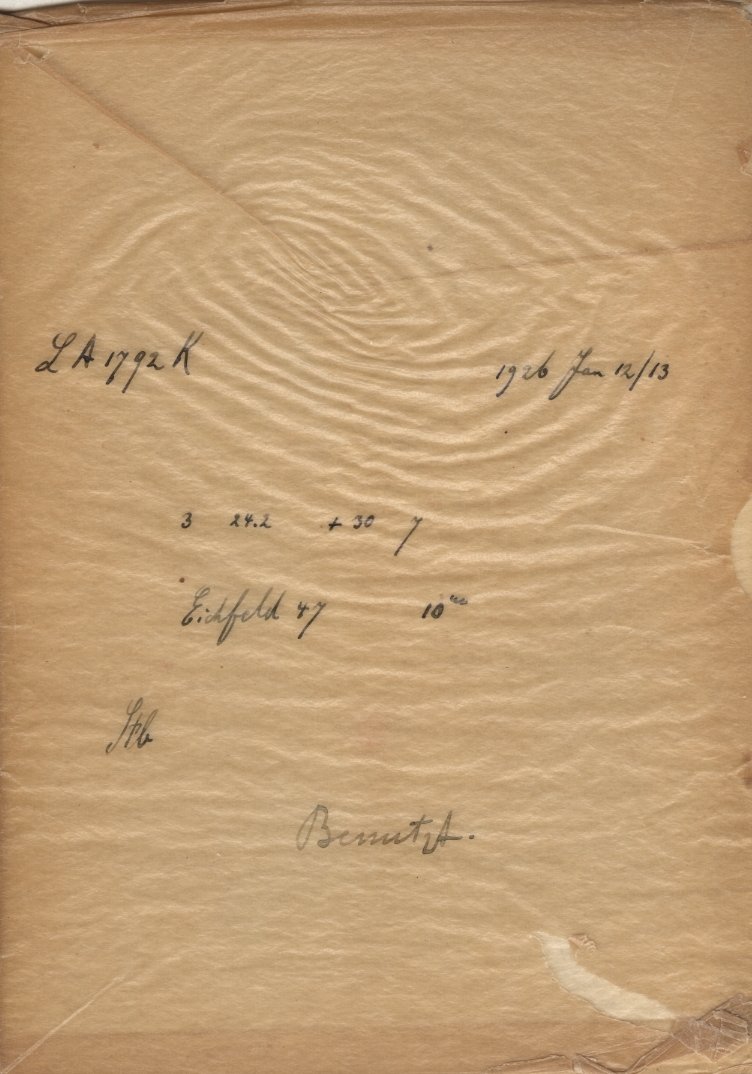 L A 1792 K 1926 Jan 12/13
3 24.2 + 30 7
Eichfeld 47 10ᵐ
Benutzt.